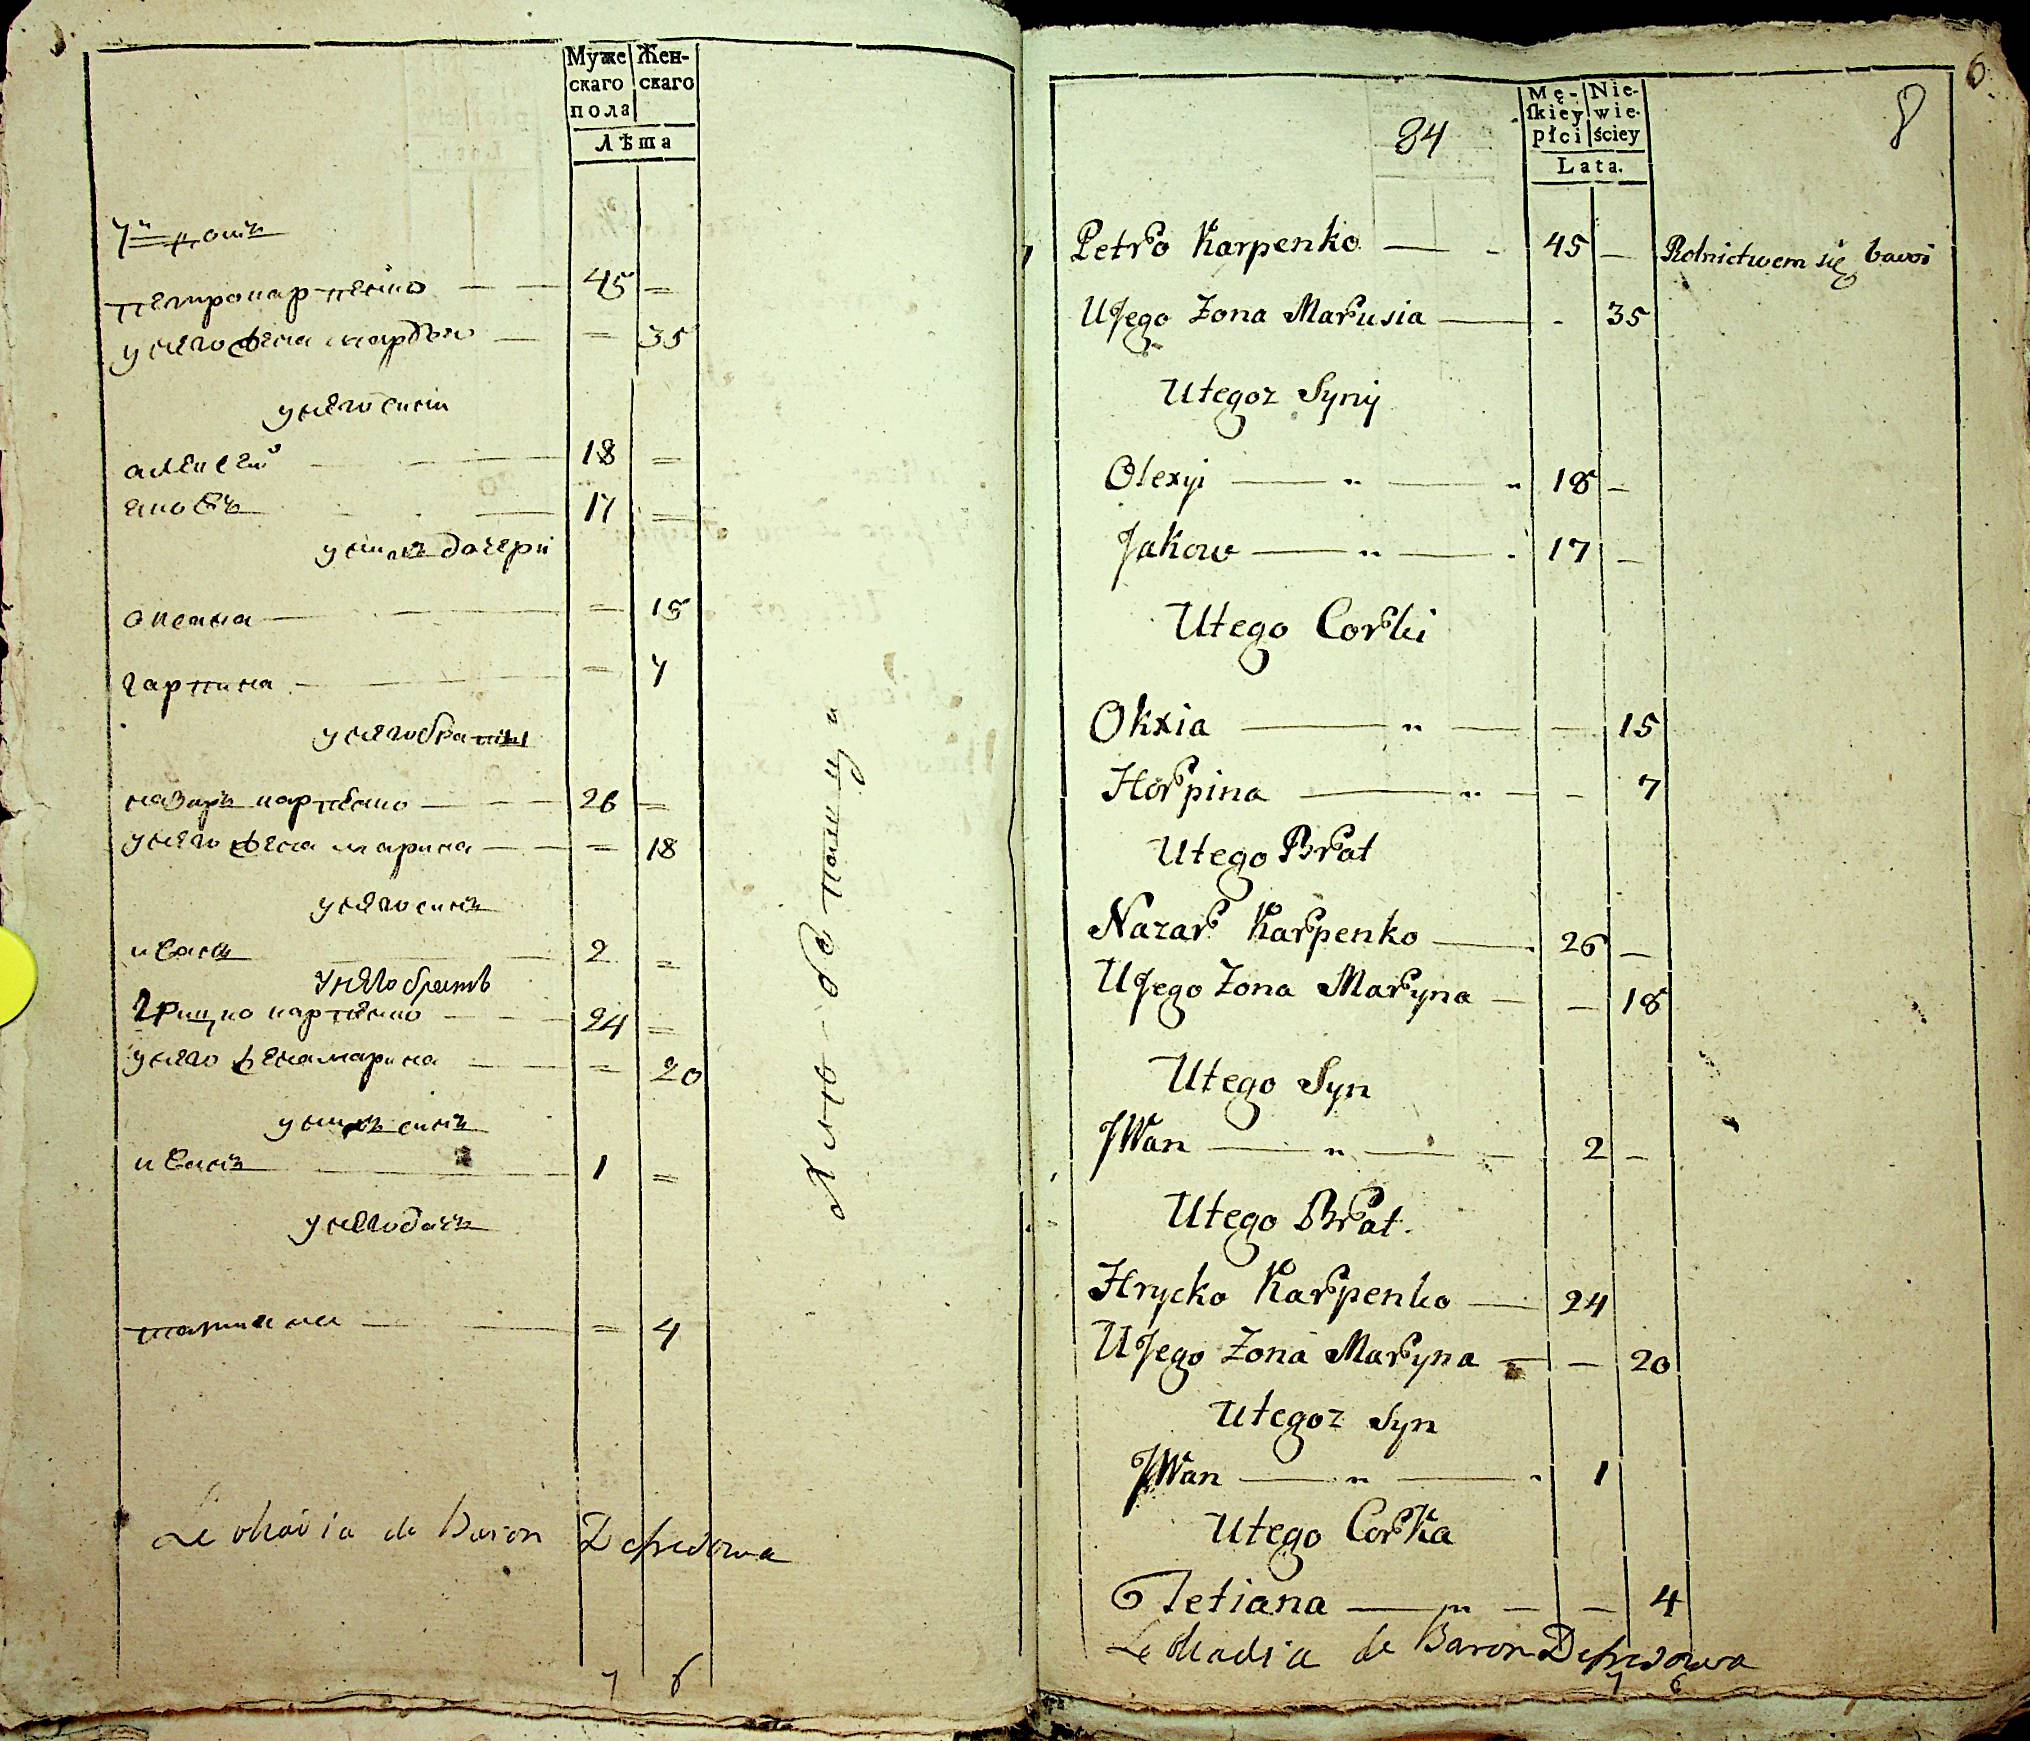 Муже Жен-
скаго скаго
пола
Лѣта
7й домъ
петро карпенко — — 45 =
у него жена — = 35
у него сини
алексей — — 18 =
яковъ — 17 =
у них дочери
оксана — — = 15
гарпина — — = 7
у него браты
назаръ карпенко — — 26 =
у него жена марина — — = 18
у него синъ
иванъ — 2 =
у него братъ
грицко карпенко — — 24 =
у него жена марина — — = 20
у них синъ
иванъ — 1 =
у него дочъ
татиана — — = 4
Leokadia de Baron
7 6
6
8
84
Mę- Nie-
ſkiey wie-
płci ściey
Lata.
7 Petro Karpenko — - 45 — Rolnictwem się bawi
U Jego Zona Marusia — - 35
U tegoz Syny
Olexyi — " — " 18 —
Jakow — " — - 17 —
U tego Corki
Okxia — " — — 15
Horpina — " — - 7
U tego Brat
Nazar Karpenko — 26 —
U Jego Zona Maryna — — 18
U tego Syn
JWan — " — — 2 —
U tego Brat.
Hrycko Karpenko — 24
U Jego Zona Maryna — — 20
U tegoz Syn
JWan — " — - 1
U tego Corka
Tetiana — " — — 4
Leokadia de Baron
7 6